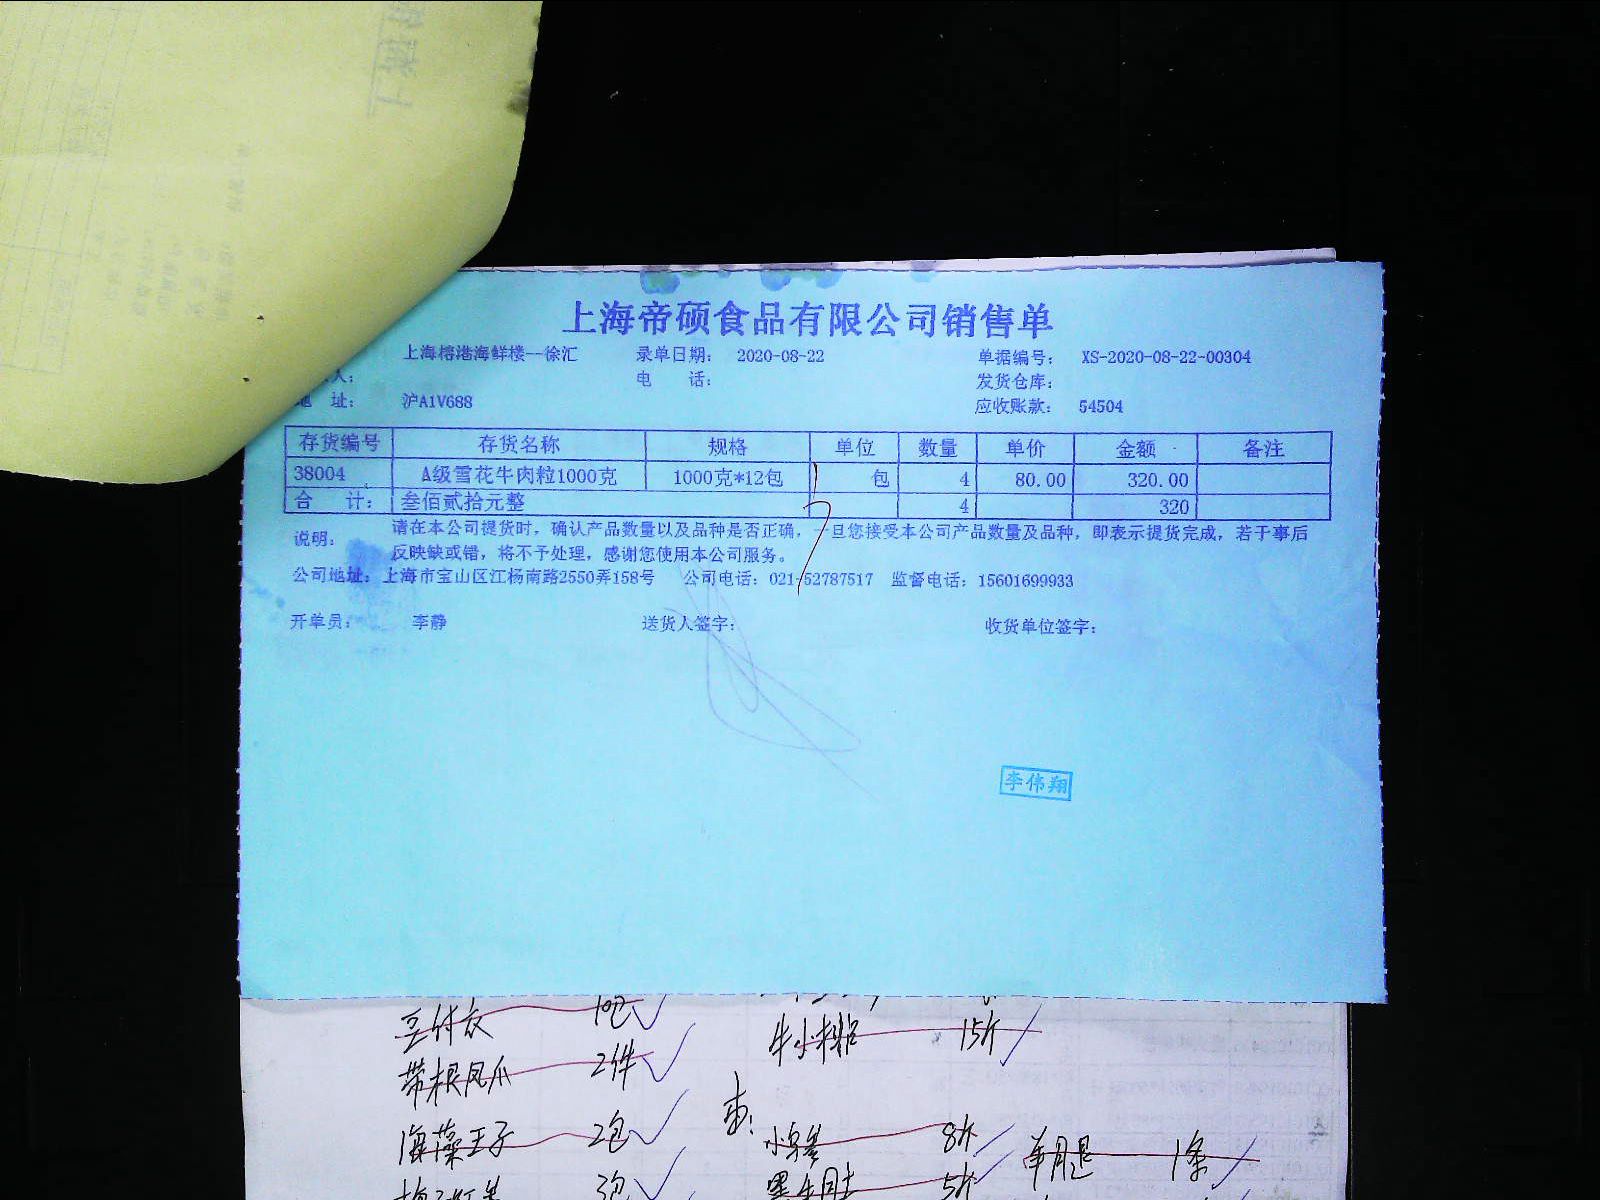 上海帝硕食品有限公司销售单
上海榕港海鲜楼--徐汇 录单日期： 2020-08-22 单据编号： XS-2020-08-22-00304
人： 电 话： 发货仓库：
地 址： 沪A1V688 应收账款： 54504
存货编号 存货名称 规格 单位 数量 单价 金额 备注
38004 A级雪花牛肉粒1000克 1000克*12包 包 4 80.00 320.00
合 计： 叁佰贰拾元整 4 320
说明： 请在本公司提货时，确认产品数量以及品种是否正确，一旦您接受本公司产品数量及品种，即表示提货完成，若于事后
反映缺或错，将不予处理，感谢您使用本公司服务。
公司地址：上海市宝山区江杨南路2550弄158号 公司电话：021-52787517 监督电话：15601699933
开单员： 李静 送货人签字： 收货单位签字：
李伟翔
10包
牛小排 15斤
带根凤爪 2件
海藻王子 2包
8斤 1条
3包 5斤